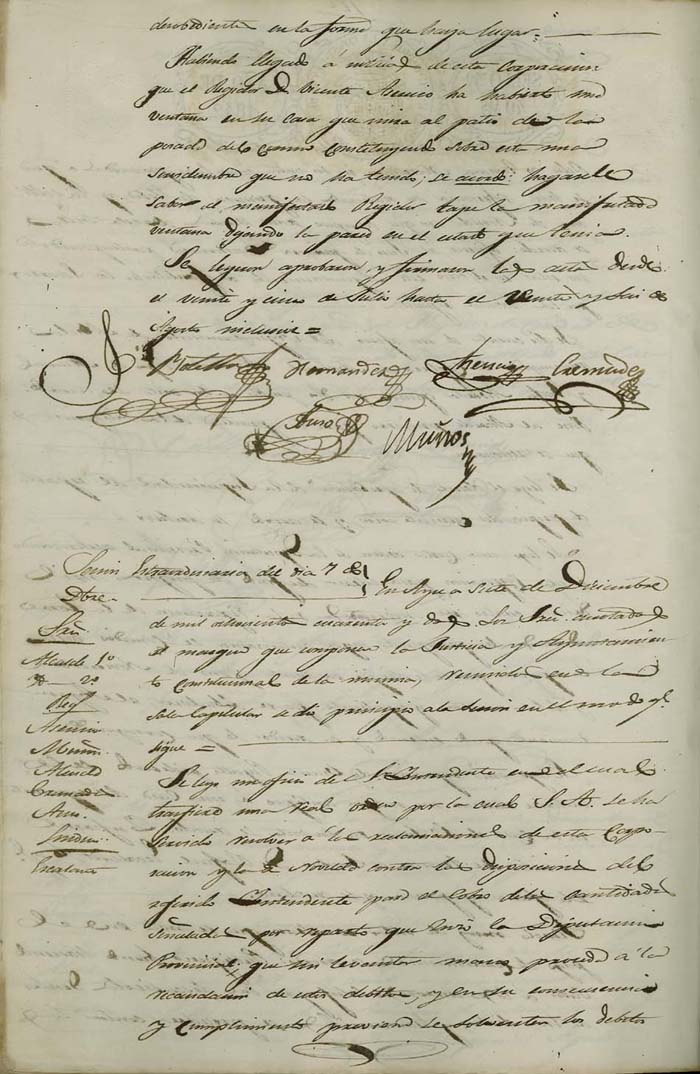 desobediente en la forma que haya lugar.
Habiendo llegado á noticia de esta Corporacion
que el Regidor D. Vicente Asensio ha habierto una
ventana en su casa que mira al patio de la
posada del comun constituyendo sobre esta una
servidumbre que no ha tenido; se acordó hagasele
saber al manifestado Regidor tape la manifestada
ventana dejando la pared en el estado que tenia.
Se leyeron aprobaron y firmaron las actas desde
el veinte y cinco de Julio hasta el veinte y seis de
Agosto inclusive =
Hernandez Asencio Cremades
Muñoz
Sesion Extraordinaria del dia 7 de
Dbre.
En Aspe á siete de Diciembre
Sres.
de mil ochocientos cuarenta y dos Los Sres. anotados
Alcalde 1º
al margen que componen la Justicia y Ayuntamien
2º
to Constitucional de la misma, reunidos en la
Reg.
sala Capitular se dio principio a la sesion en el modo qe.
Asencio
sigue =
Muñoz
Se leyo un oficio del Sr. Intendente en el cual
Cremades
trascrive una Real orden por la cual S. A. se ha
servido resolver á las reclamaciones de esta Corpo-
racion y la de Novelda contra las disposiciones del
Escalona
referido Intendente para el cobro de las cantidades
señaladas por reparto que hizo la Diputacion
Provincial, que sin levantar mano proceda á la
recaudacion de estos debitos, y en su consecuencia
y cumplimiento previene se solventen los debitos